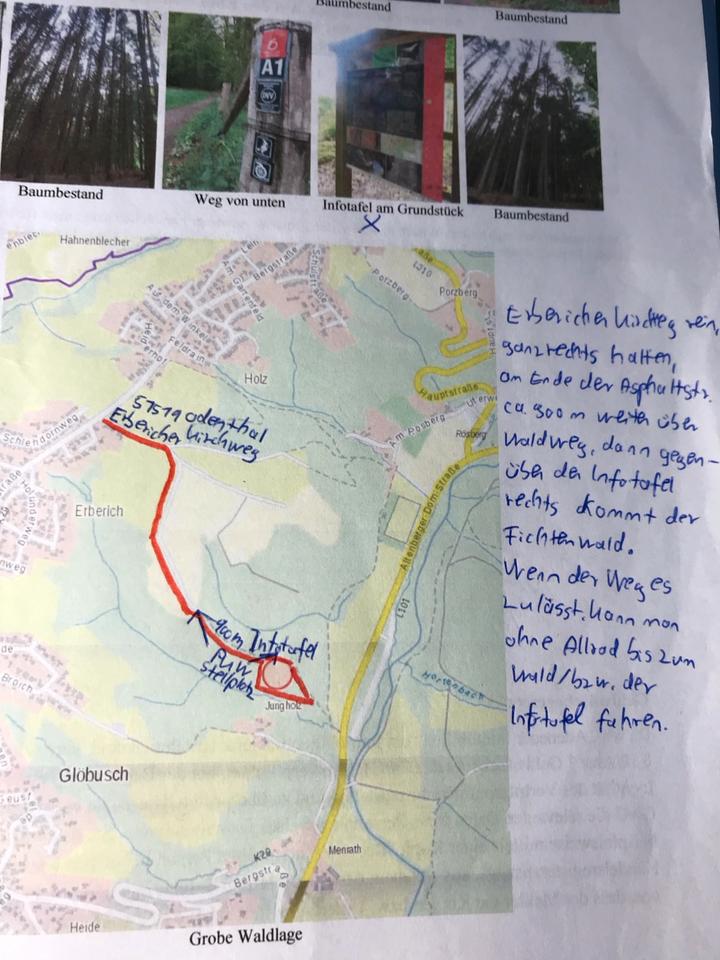 Baumbestand
Baumbestand
A1
Baumbestand
Weg von unten
Infotafel am Grundstück
Baumbestand
X
Hahnenblecher
Bergstraße
Schulstraße
Auf dem Winkel
Gartenfeld
Feldrain
Holz
Porzberg
L310
Porzberg
Hauptstraße
Am Rösberg
Rösberg
Schlehdornweg
51519 Odenthal
Erbericher Kirchweg
Erberich
Altenberger-Dom-Straße
L101
900m Infotafel
PKW
Stellplatz
Jungholz
Broich
Glöbusch
Menrath
K29
Bergstraße
Heide
Grobe Waldlage
Erbericher Kirchweg rein,
ganz rechts halten,
am Ende der Asphaltstr.
ca. 900 m weiter über
Waldweg, dann gegen-
über der Infotafel
rechts kommt der
Fichtenwald.
Wenn der Weg es
zulässt, kann man
ohne Allrad bis zum
Wald/bzw. der
Infotafel fahren.